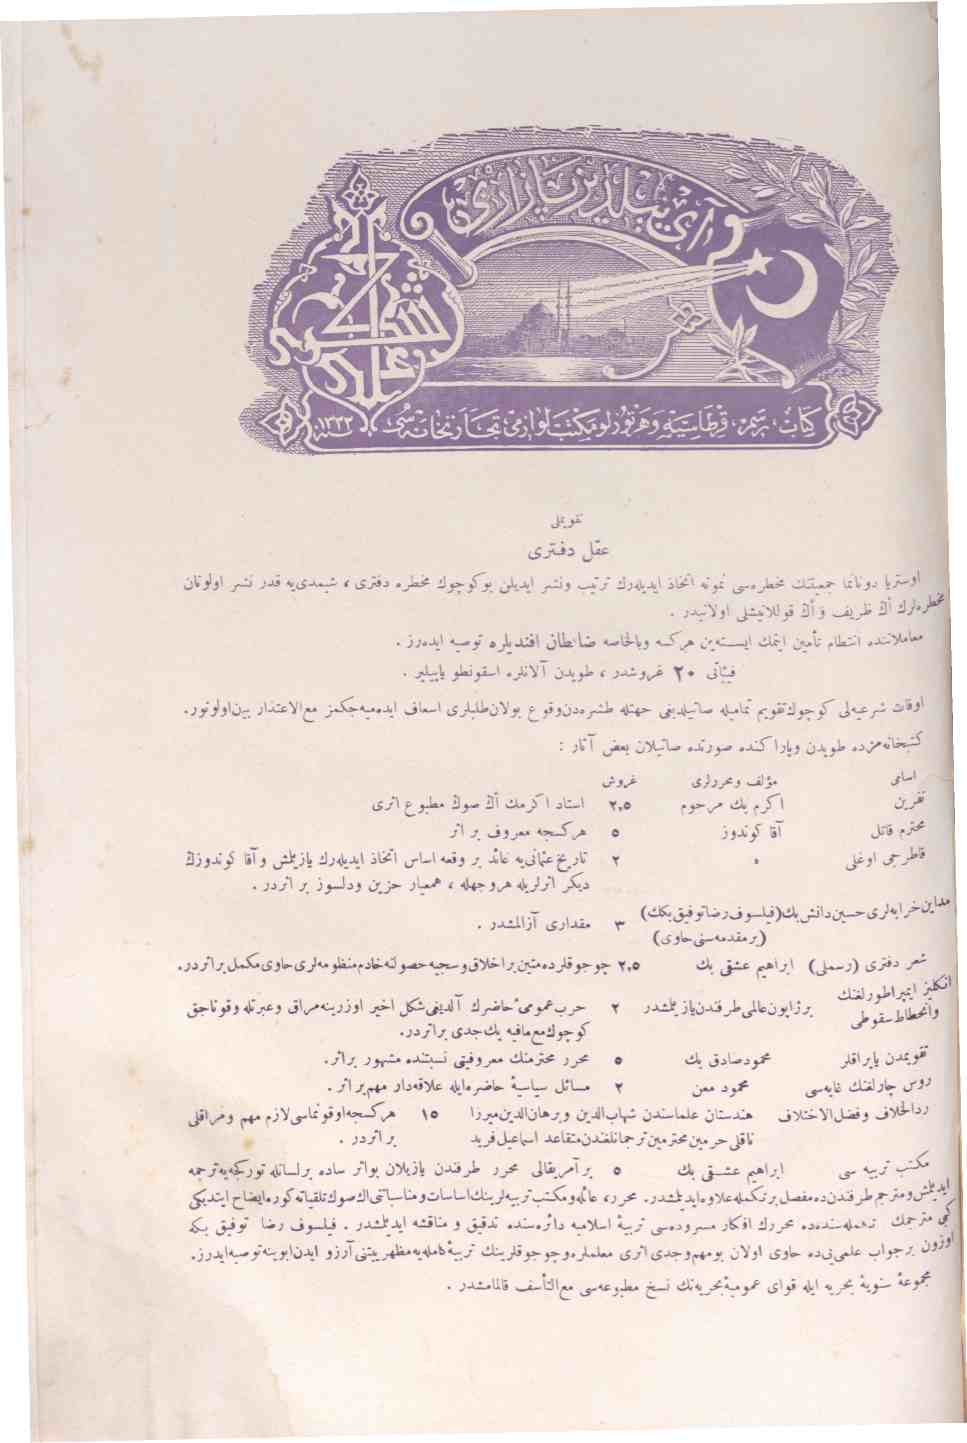 كتاب، رسم، قرطاسيه وهرتورلومكتب لوازمى تجارتخانه‌سى
١٣٣٢
تقويملى
عقل دفترى
اوستريا دونانما جمعيتنك مخطره‌سى نمونه اتخاذ ايديله‌رك ترتيب ونشر ايديلن بوكوچوك مخطره دفترى ، شيمدى‌يه قدر نشر اولونان
مخطره‌لرك أك ظريف و أك قوللانيشلى اولانيدر .
معاملاتنده انتظام تأمين ايتمك ايسته‌ين هركسه وبالخاصه ضابطان افنديلره توصيه ايده‌رز .
فيئاتى ٢٠ غروشدر ، طوپدن آلانلره اسقونطو ياپيلير .
اوقات شرعيه‌لى كوچوك تقويم تماميله صاتيلديغى جهتله طشره‌دن وقوع بولان طلبلرى اسعاف ايده‌ميه‌جكمز مع الاعتذار بيان اولونور.
كتبخانه‌مزده طوپدن وپاراكنده صورتده صاتيلان بعض آثار :
اسامى مؤلف ومحررلرى غروش
نفرين اكرم بك مرحوم ٢,٥ استاد اكرمك أك صوك مطبوع اثرى
محترم قاتل آقا كوندوز ٥ هركسجه معروف بر اثر
قاطرجى اوغلى » ٢ تاريخ عثمانى‌يه عائد بر وقعه اساس اتخاذ ايديله‌رك يازيلمش و آقا كوندوزك
ديكر اثرلريله هروجهله ، همعيار حزين ودلسوز بر اثردر .
مداين خرابه‌لرى حسين دانش بك (فيلسوف رضا توفيق بكك) ٣ مقدارى آزالمشدر .
(بر مقدمه‌سنى حاوى)
شعر دفترى (رسملى) ابراهيم عشقى بك ٢,٥ چوجوقلرده متين براخلاق وسجيه حصولنه خادم منظومه‌لرى حاوى مكمل براثردر.
انكليز ايمپراطورلغنك برژاپون عالمى طرفندن يازيلمشدر ٢ حرب عمومئ حاضرك آلديغى شكل اخير اوزرينه مراق وعبرتله وقوناجق
وانحطاط سقوطى كوچوك مع مافيه پك جدى براثردر.
تقويمدن ياپراقلر محمود صادق بك ٥ محرر محترمنك معروفيتى نسبتنده مشهور براثر.
روس چارلغنك غايه‌سى محمود معن ٢ مسائل سياسيۀ حاضره‌ايله علاقه‌دار مهم بر اثر .
ردالخلاف وفضل الاختلاف هندستان علماسندن شهاب الدين وبرهان الدين ميرزا ١٥ هركسجه اوقونماسى لازم مهم ومراقلى
ناقلى حرمين محترمين ترجمانلغندن متقاعد اسماعيل فريد بر اثردر .
مكتب تربيه سى ابراهيم عشقى بك ٥ برآمريقالى محرر طرفندن يازيلان بواثر ساده برلسانله توركجه‌يه ترجمه
ايديلمش ومترجم طرفندن ده مفصل برتكمله علاوه ايديلمشدر. محرر، عائله ومكتب تربيه‌لرينك اساسات ومناسباتنى اك صوك تلقياته كوره ايضاح ايتديكى
كبى مترجمك تكمله‌سنده‌ده محررك افكار مسروده‌سى تربيۀ اسلاميه دائره‌سنده تدقيق و مناقشه ايديلمشدر . فيلسوف رضا توفيق بكه
اوزون برجواب علمى‌يى‌ده حاوى اولان بومهم وجدى اثرى معلملره وچوجوقلرينك تربيۀ كامله‌يه مظهريتنى آرزو ايدن ابوينه توصيه ايدرز.
مجموعۀ سنويۀ بحريه ايله قواى عموميۀ بحريه‌نك نسخ مطبوعه‌سى مع التأسف قالمامشدر .